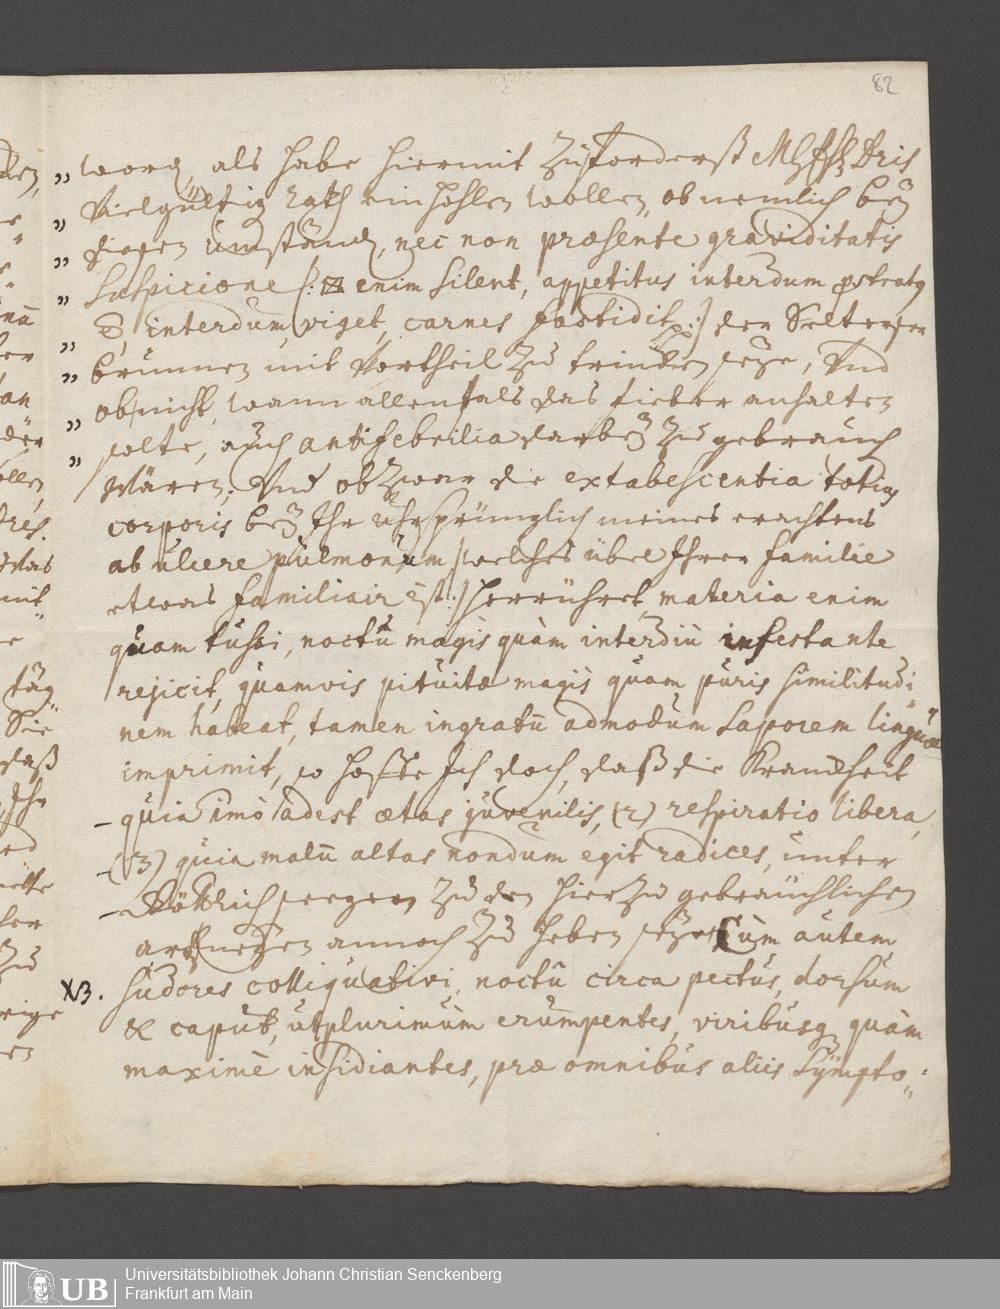 82
„ word, als habe hiermit zuforderst MHhh Dris
„ Vielgültig rath einhohlen wollen, ob nemlich beÿ
„ diesen umständ, nec non præsente graviditatis
„ Suspicione /: enim silent, appetitus interdum prostratus
„ & interdum viget, carnes fastidit :/ der Selterser
„ brunnen mit Vortheil zu trincken seÿe, Und
„ ob nicht, wann allenfals das fieber anhalten
„ solte, auch antifebrilia darbeÿ zu gebrauch
wären. Und ob zwar die extabescentia totius
corporis beÿ Ihr uhrsprünglich meines erachtens
ab ulcere pulmonum /welches übel Ihrer familie
etwas familiair ist:/ herrühret, materia enim
quam tussi, noctu magis quàm interdiu infestante
rejicit, quamvis pituitæ magis quam puris similitudi„
nem habeat, tamen ingratū admodum saporem linguæ
imprimit, so hoffte Ich doch, daß die Kranckheit
– quia imò adest ætas juvenilis, (2) respiratio libera,
– (3) quia malū altas nondum egit radices, unter
– Göttlich seegen zu den hierzu gebräuchlichen
artzneÿen annoch zu heben seÿe. Cùm autem
NB. sudores colliquativi, noctu circa pectus, dorsum
& caput, utplurimùm erumpentes, viribusq quàm
maximè insidiantes, præ omnibus aliis Sÿmpto„
UB
Universitätsbibliothek Johann Christian Senckenberg
Frankfurt am Main